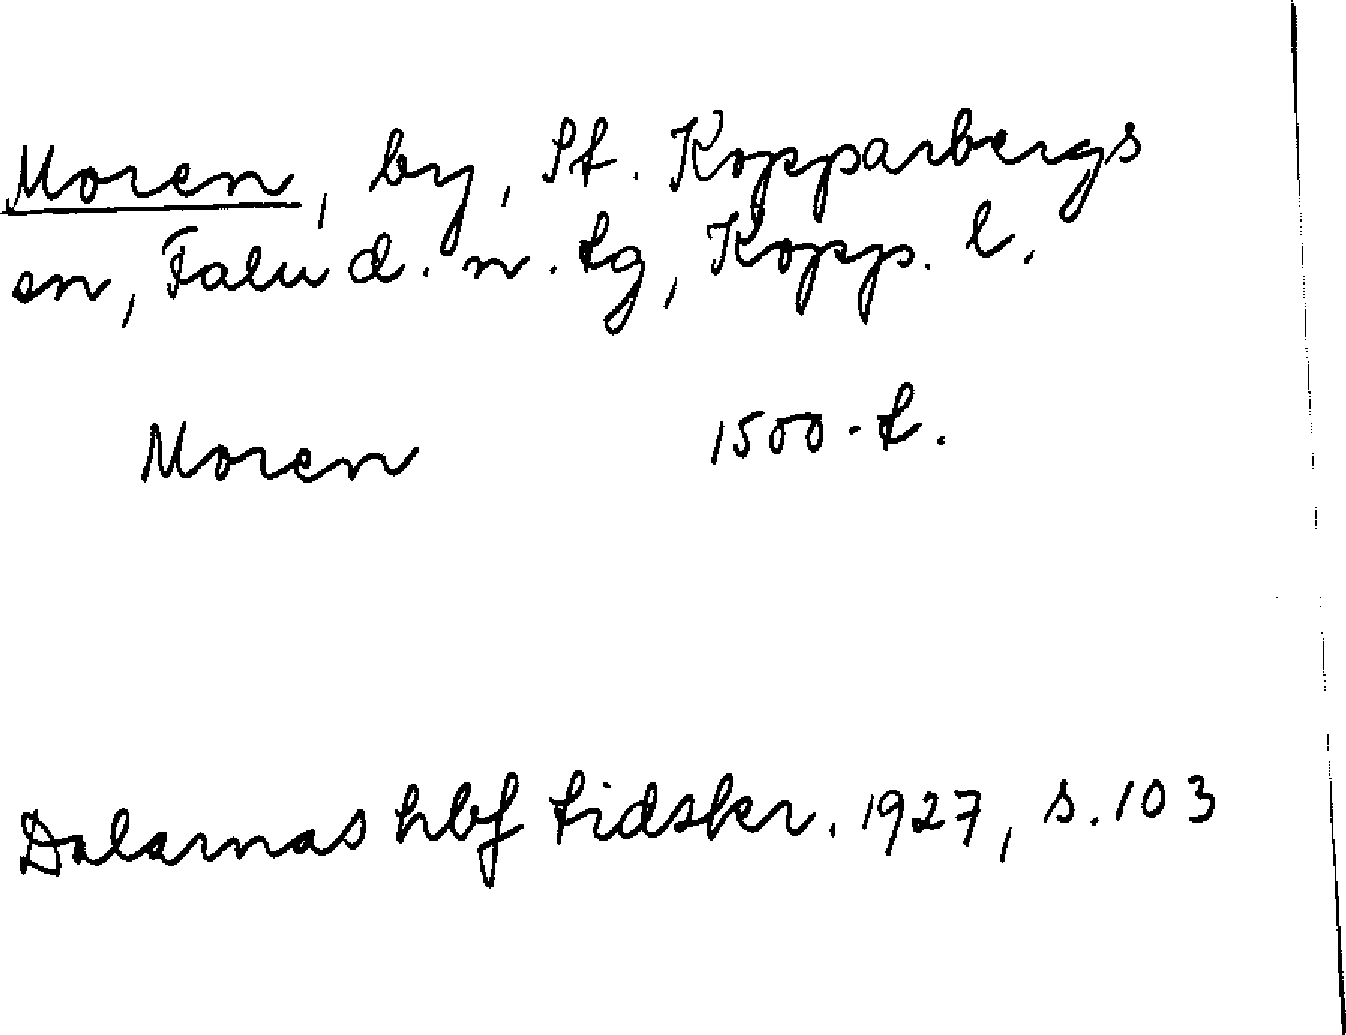 Moren, by, St. Kopparbergs
sn, Falu d. n. tg, Kopp. l.
Moren 1500-t.
Dalarnas hbf tidskr. 1927, s. 103